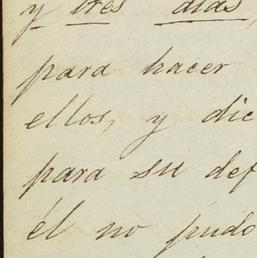 y tres dias,
para hacer
ellos, y dic
para su def
él no pudo